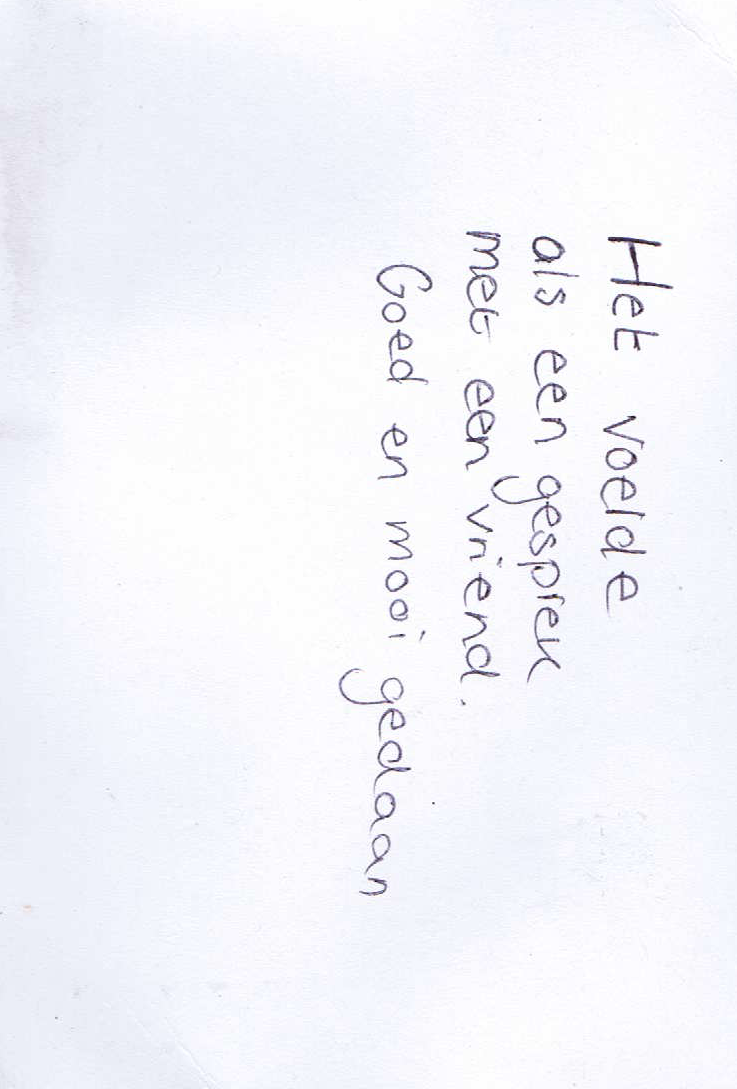 Het voelde
als een gesprek
met een vriend.
Goed en mooi gedaan